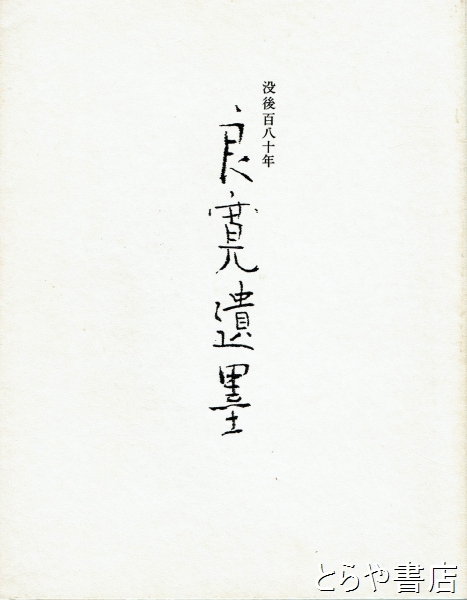 没後百八十年
良寛遺墨
とらや書店